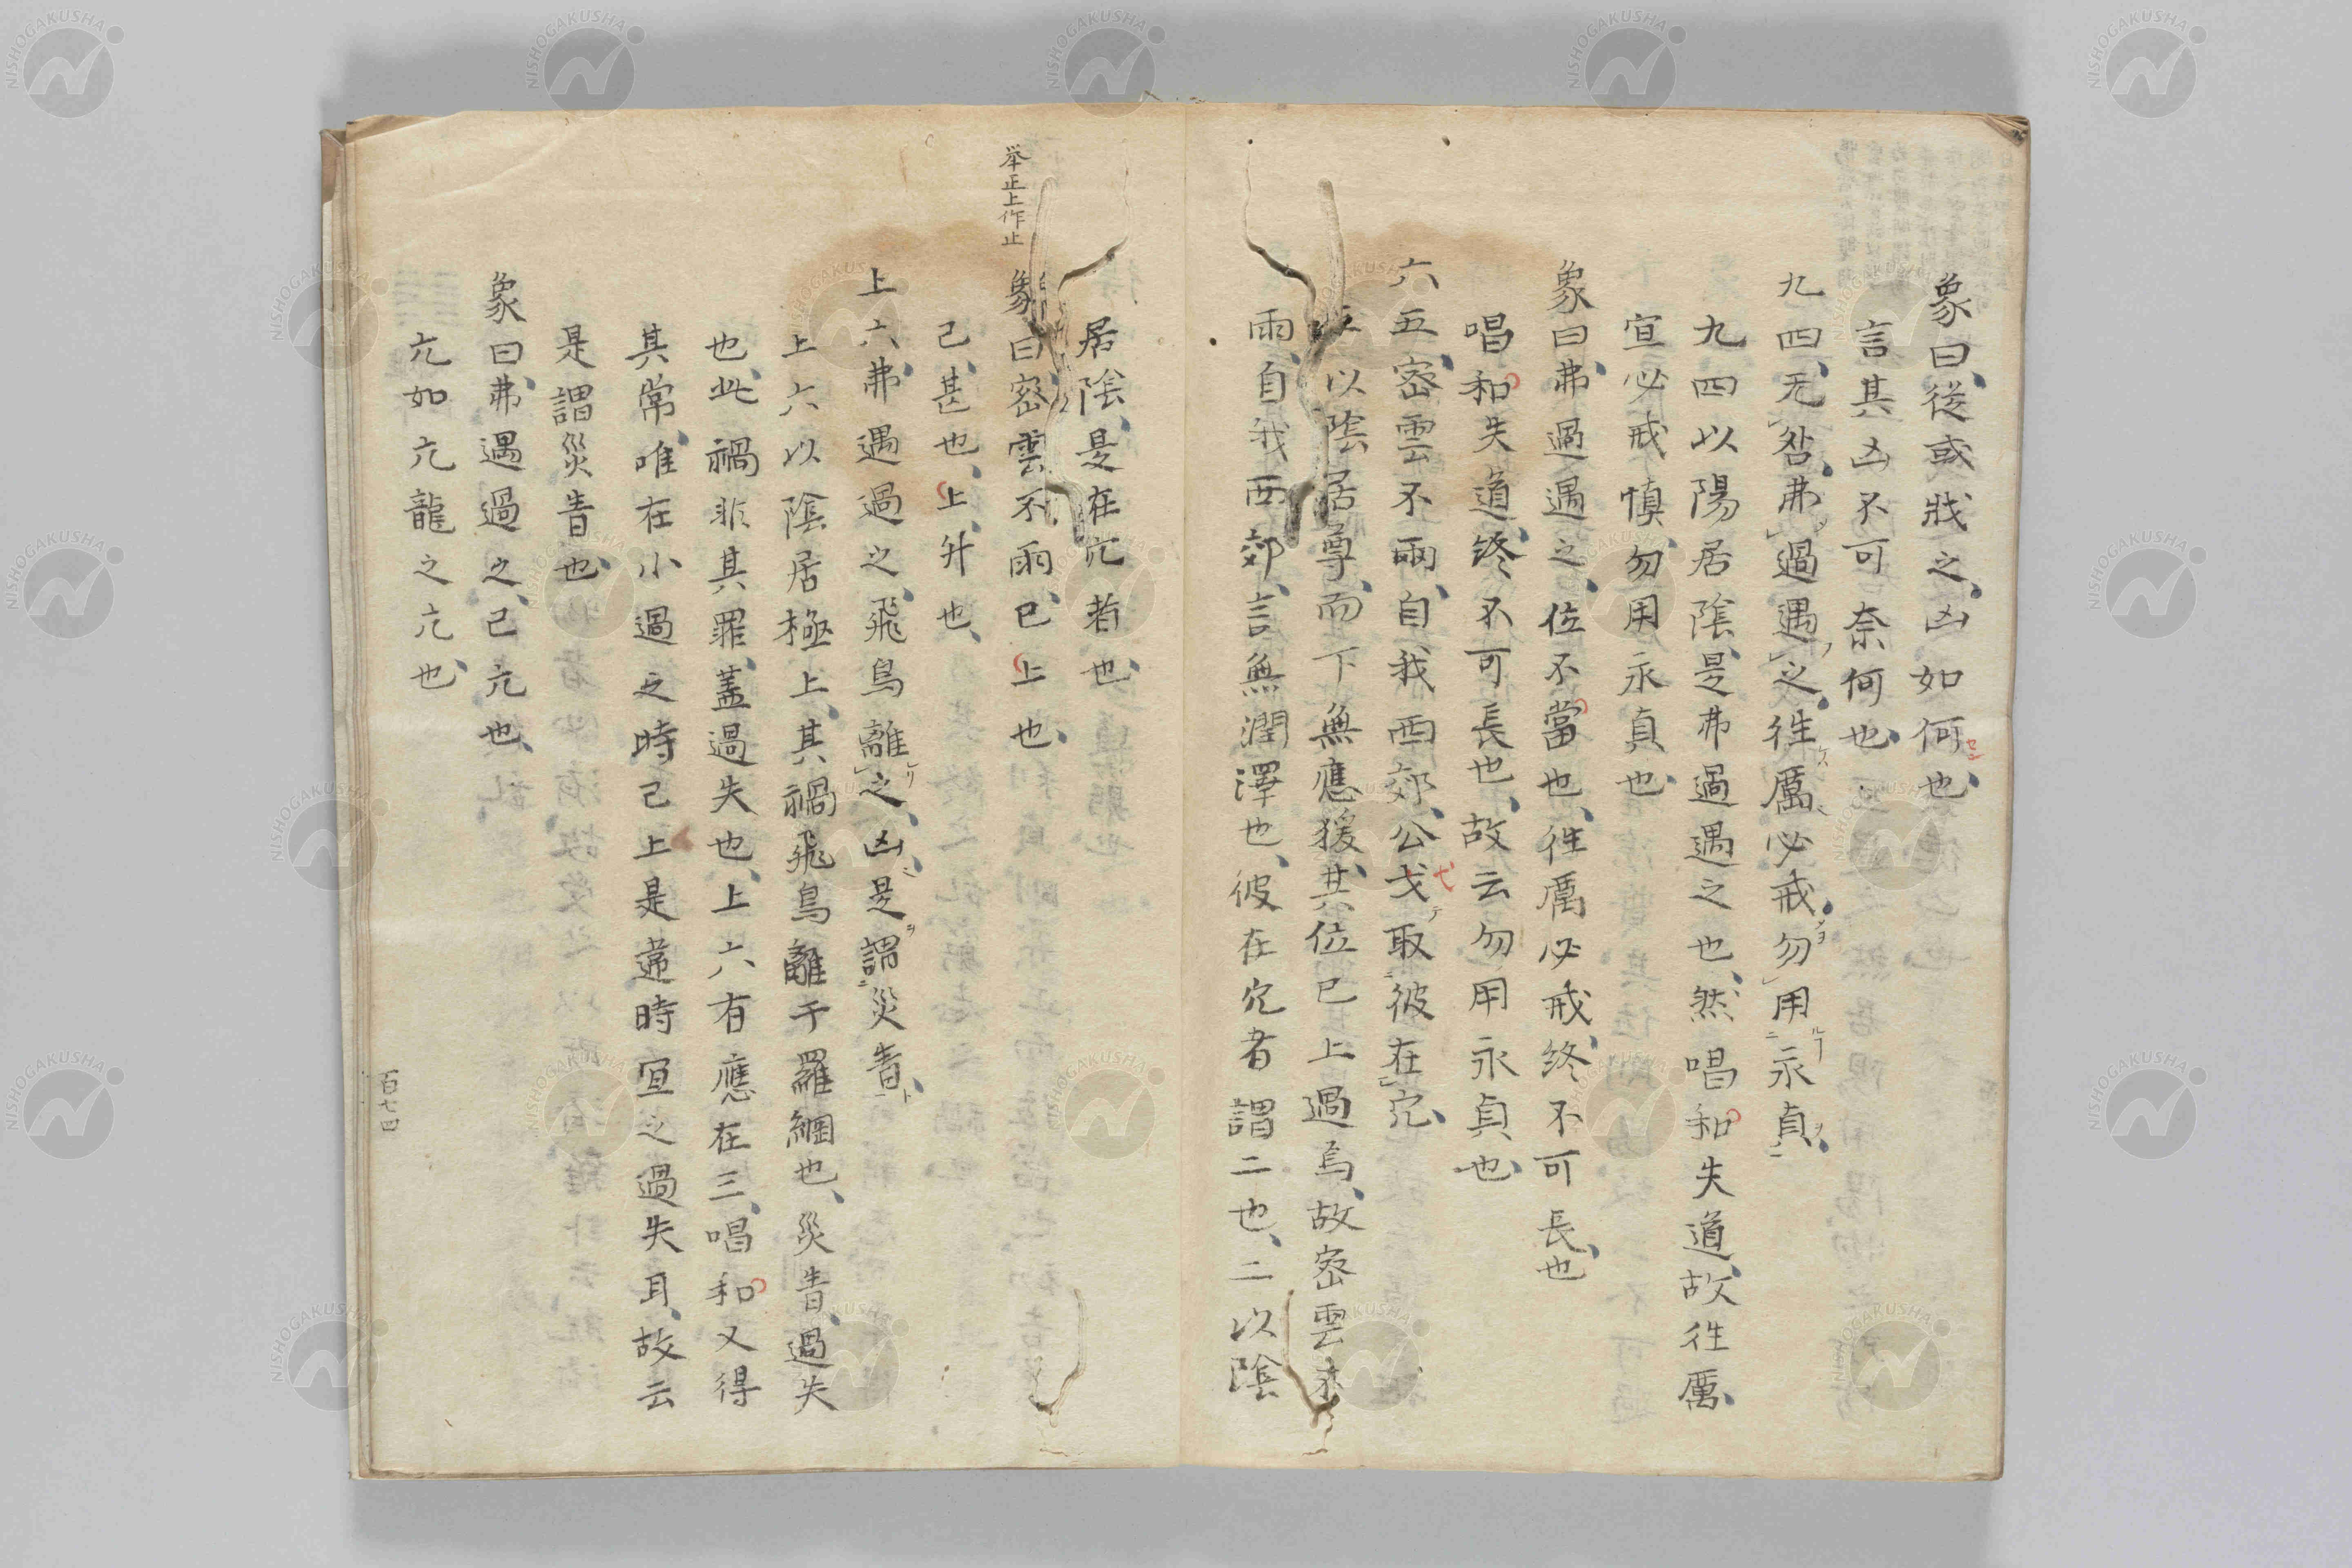 象曰、從或戕之、凶如何也、
言其凶不可奈何也、
九四、无咎、弗過遇之、往厲必戒、勿用永貞、
九四以陽居陰、是弗過遇之也、然唱和失道、故往厲、
宜必戒慎、勿用永貞也、
象曰、弗過遇之、位不當也、往厲必戒、終不可長也、
唱和失道、終不可長也、故云勿用永貞也、
六五、密雲不雨、自我西郊、公弋取彼在穴、
五以陰居尊、而下無應援、其位已上過焉、故密雲不
雨、自我西郊、言無潤澤也、彼在穴者謂二也、二以陰
居陰、是在穴者也、
舉正上作止
象曰、密雲不雨、已上也、
已、甚也、上升也、
上六、弗遇過之、飛鳥離之、凶、是謂災眚、
上六以陰居極上、其禍飛鳥離于羅網也、災眚、過失
也、此禍非其罪、蓋過失也、上六有應在三、唱和又得
其常、唯在小過之時已上是違時宜之過失耳、故云
是謂災眚也、
象曰、弗遇過之、已亢也、
亢如亢龍之亢也、
百七四
NISHOGAKUSHA